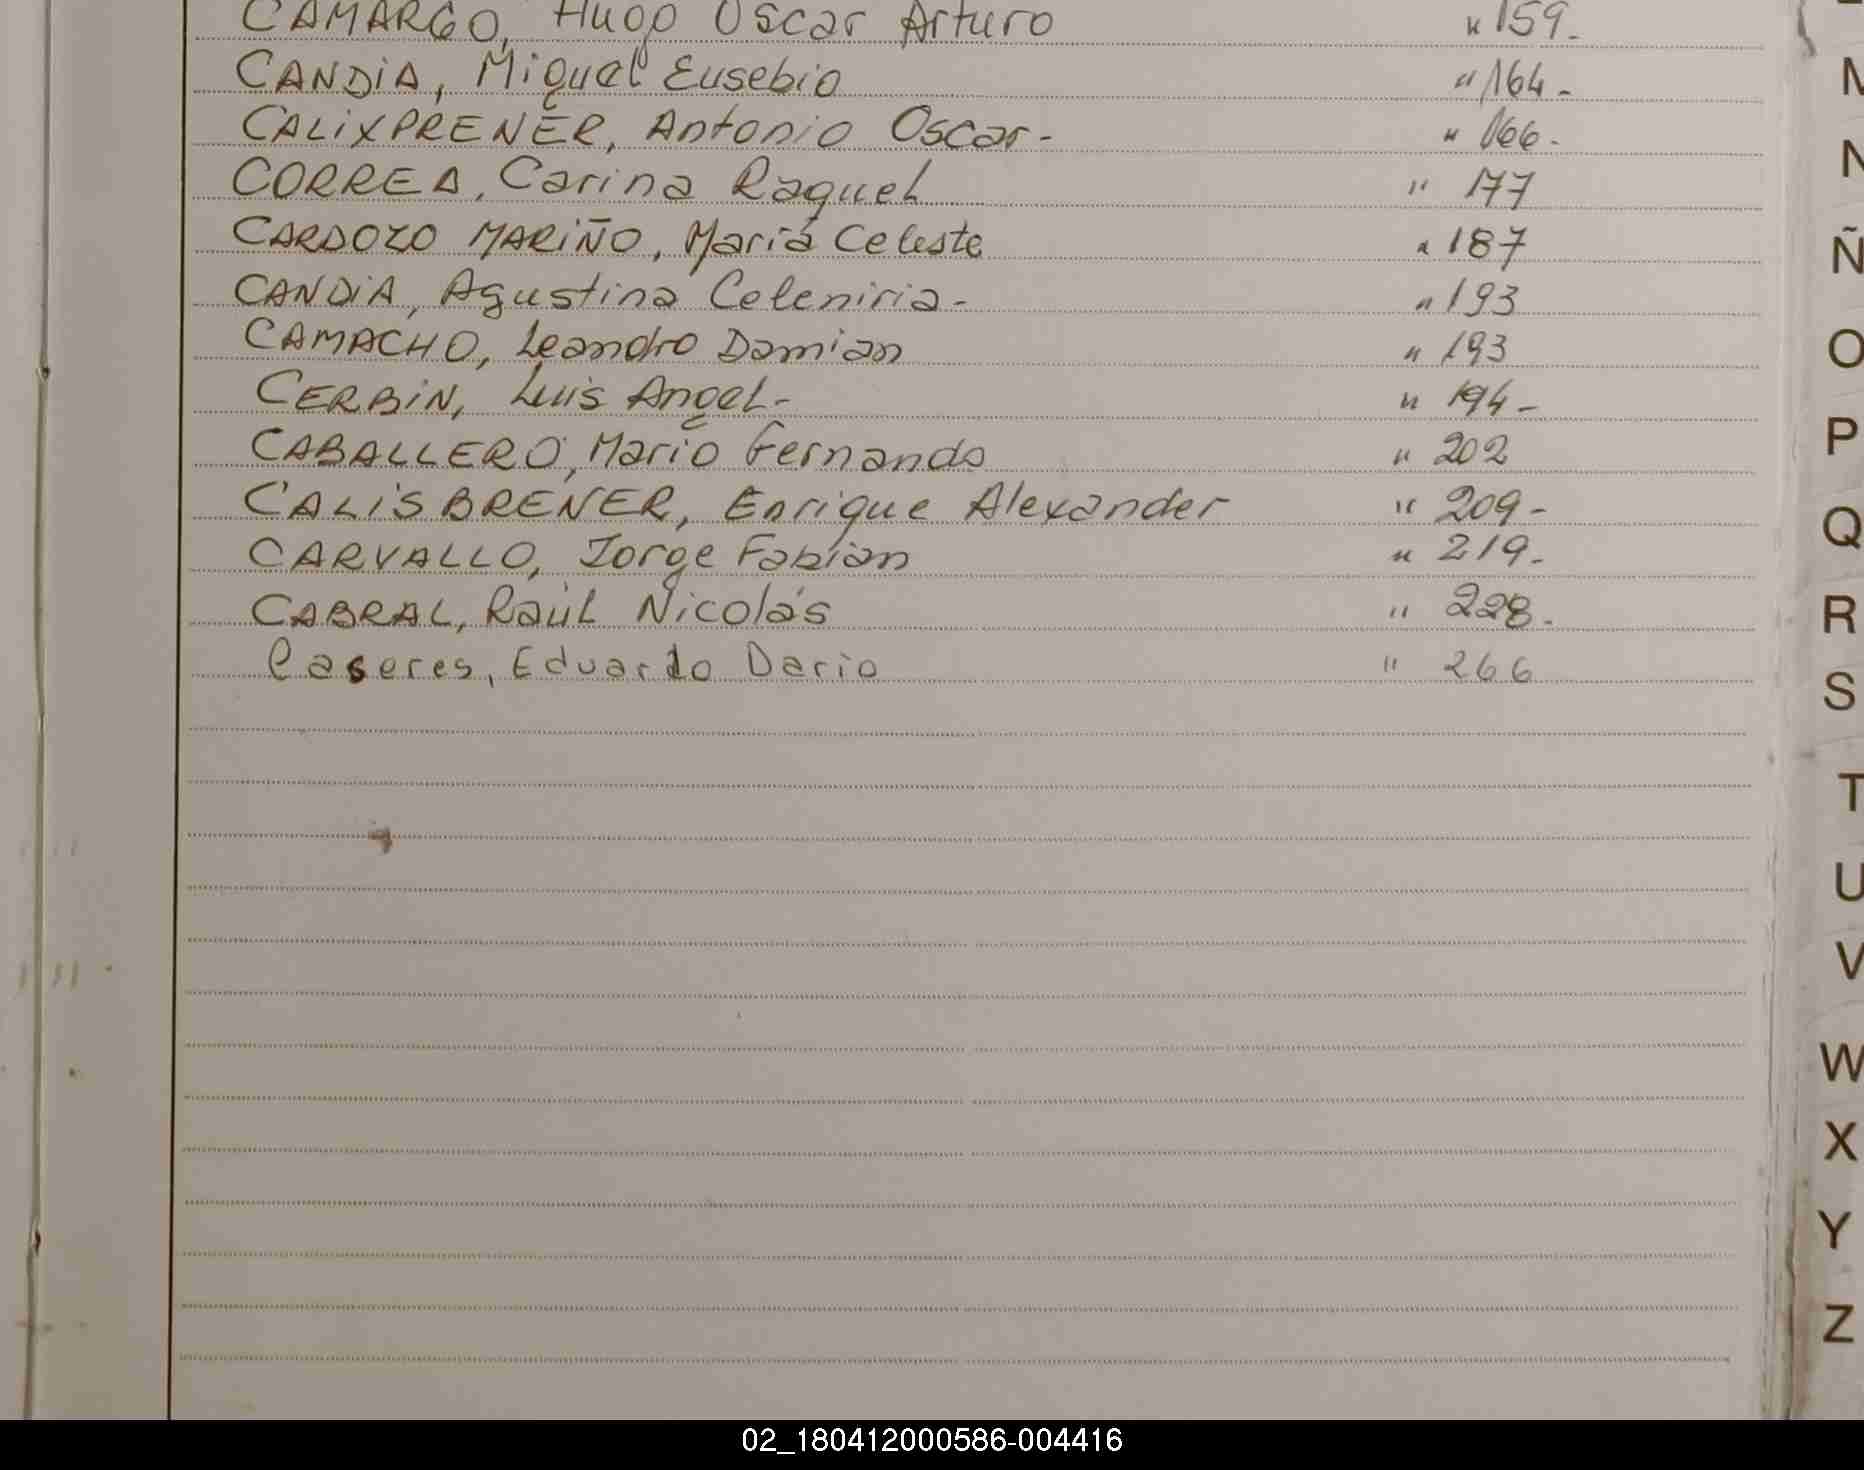 CAMARGO, Hugo Oscar Arturo " 159-
CANDIA, Miguel Eusebio " 164-
CALIXPRENER, Antonio Oscar- " 166-
CORREA, Carina Raquel " 177
CARDOZO MARIÑO, María Celeste " 187
CANDIA, Agustina Celeniria- " 193
CAMACHO, Leandro Damian " 193
CERBIN, Luis Angel- " 194-
CABALLERO, Mario Fernando " 202
CALISBRENER, Enrique Alexander " 209-
CARVALLO, Jorge Fabian " 219-
CABRAL, Raúl Nicolás " 228-
Caseres, Eduardo Dario " 266
M
N
Ñ
O
P
Q
R
S
T
U
V
W
X
Y
Z
02_180412000586-004416